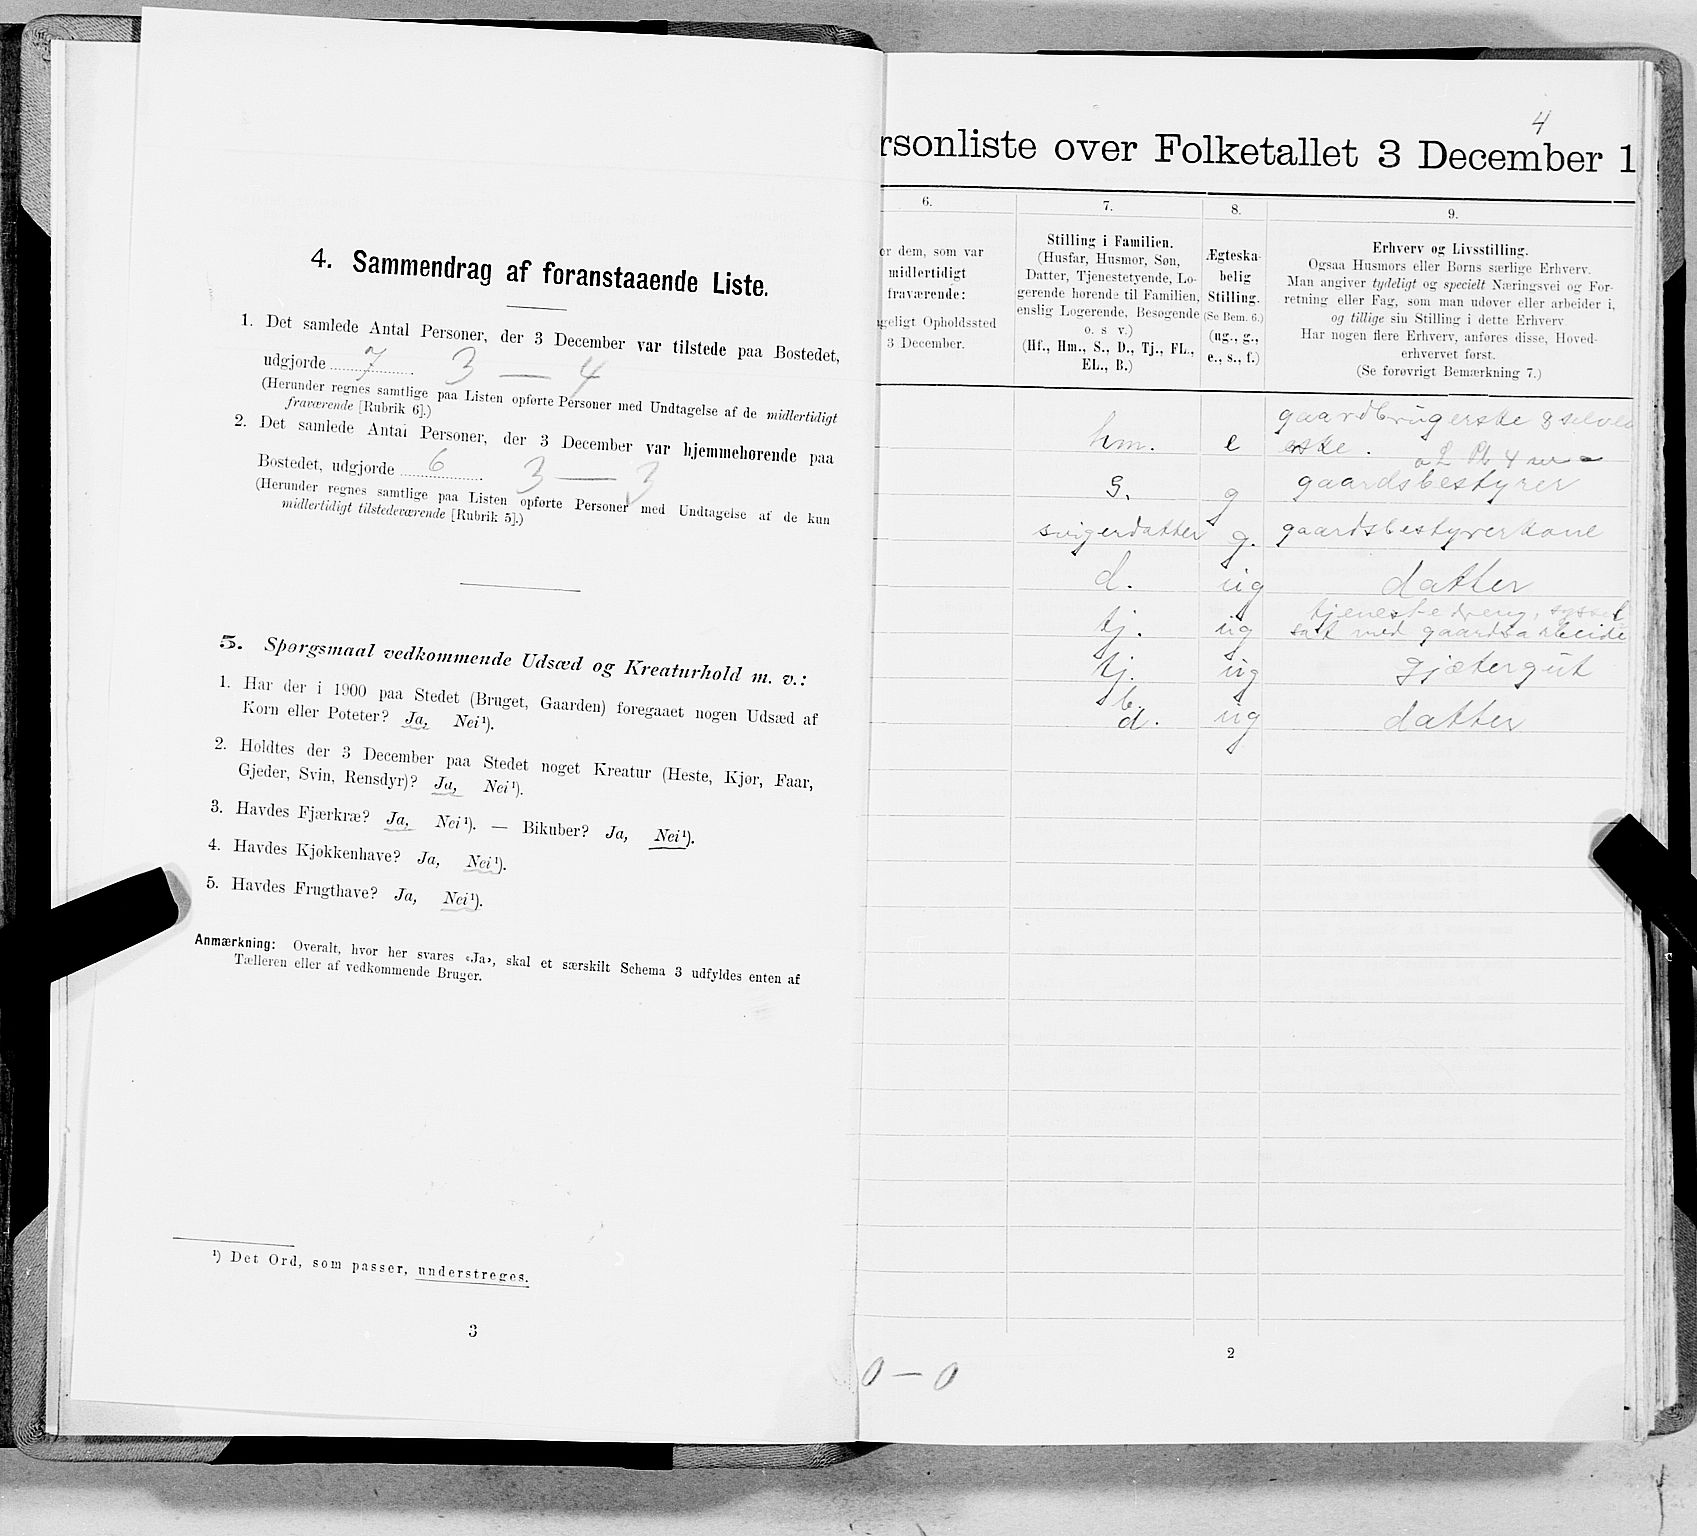 4. Sammendrag af foranstaaende Liste.
1. Det samlede Antal Personer, der 3 December var tilstede paa Bostedet,
udgjorde 7 3 — 4
(Herunder regnes samtlige paa Listen opførte Personer med Undtagelse af de midlertidigt
fraværende [Rubrik 6].)
2. Det samlede Antal Personer, der 3 December var hjemmehørende paa
Bostedet, udgjorde 6 3 — 3
(Herunder regnes samtlige paa Listen opførte Personer med Undtagelse af de kun
midlertidigt tilstedeværende [Rubrik 5].)
5. Spørgsmaal vedkommende Udsæd og Kreaturhold m. v.:
1. Har der i 1900 paa Stedet (Bruget, Gaarden) foregaaet nogen Udsæd af
Korn eller Poteter? Ja, Nei¹).
2. Holdtes der 3 December paa Stedet noget Kreatur (Heste, Kjør, Faar,
Gjeder, Svin, Rensdyr)? Ja, Nei¹).
3. Havdes Fjærkræ? Ja, Nei¹). — Bikuber? Ja, Nei¹).
4. Havdes Kjøkkenhave? Ja, Nei¹).
5. Havdes Frugthave? Ja, Nei¹).
Anmærkning: Overalt, hvor her svares «Ja», skal et særskilt Schema 3 udfyldes enten af
Tælleren eller af vedkommende Bruger.
¹) Det Ord, som passer, understreges.
3
4
rsonliste over Folketallet 3 December 1
6.
or dem, som var
midlertidigt
fraværende:
geligt Opholdssted
3 December.
7.
Stilling i Familien.
(Husfar, Husmor, Søn,
Datter, Tjenestetyende, Lo-
gerende hørende til Familien,
enslig Logerende, Besøgende
o. s v.)
(Hf., Hm., S., D., Tj., FL.,
EL., B.)
8.
Ægteska-
belig
Stilling.
(Se Bem. 6.)
(ug., g.,
e., s., f.)
9.
Erhverv og Livsstilling.
Ogsaa Husmors eller Børns særlige Erhverv.
Man angiver tydeligt og specielt Næringsvei og For-
retning eller Fag, som man udøver eller arbeider i,
og tillige sin Stilling i dette Erhverv.
Har nogen flere Erhverv, anføres disse, Hoved-
erhvervet først.
(Se forøvrigt Bemærkning 7.)
gaardbrugerske &
hm. e erske.
S. g gaardsbestyrer
svigerdatter g. gaardsbestyrerkone
d. ug datter
tjenestedreng, syssel
tj. ug sat med gaardsarbeide
tj. ug gjætergut
b.
d. ug datter
2
0 — 0